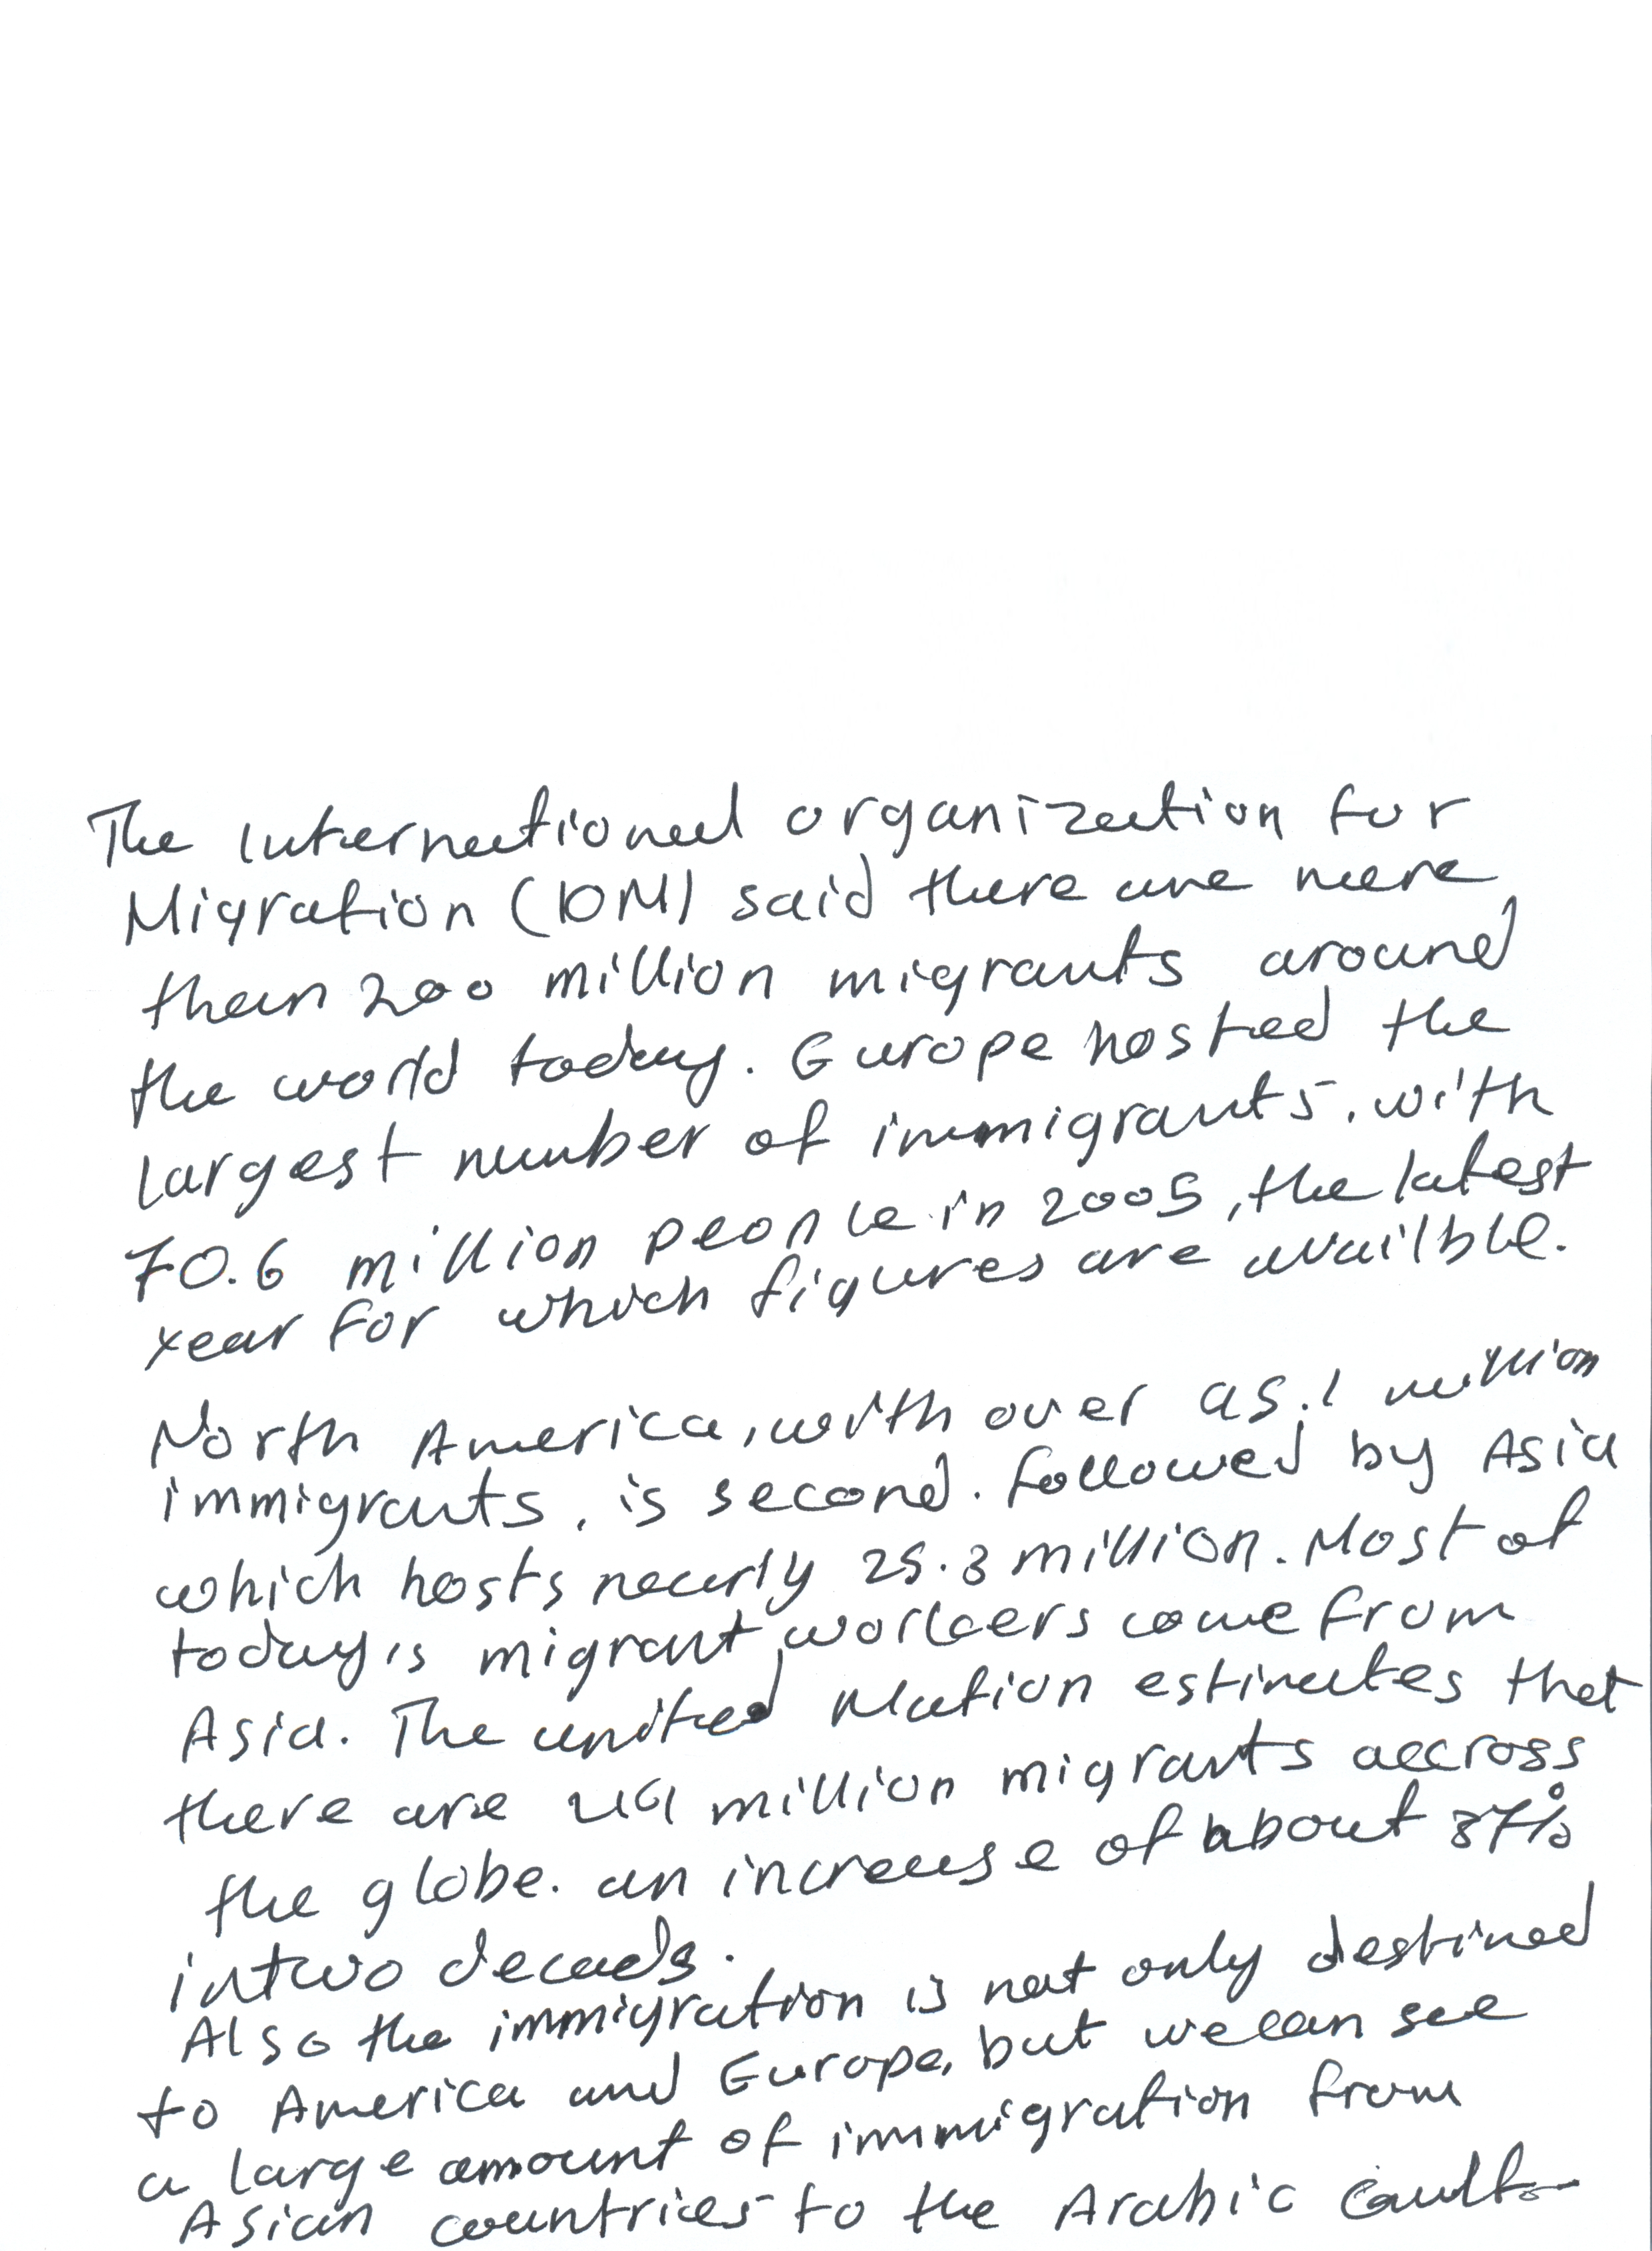 The International organization for
Migration (IOM) said there are more
than 200 million migrants around
the world today. Europe hosted the
largest number of immigrants, with
70.6 million people in 2005, the latest
year for which figures are availble.
North America, with over 45.1 million
immigrants, is second. followed by Asia
which hosts nearly 25.3 million. Most of
today's migrant workers come from
Asia. The united Nation estimates that
there are million migrants accross
the globe. an increase of about 37%
in two decads.
Also the immigration is not only destined
to America and Europe, but we can see
a large amount of immigration from
Asian countries to the Arabic